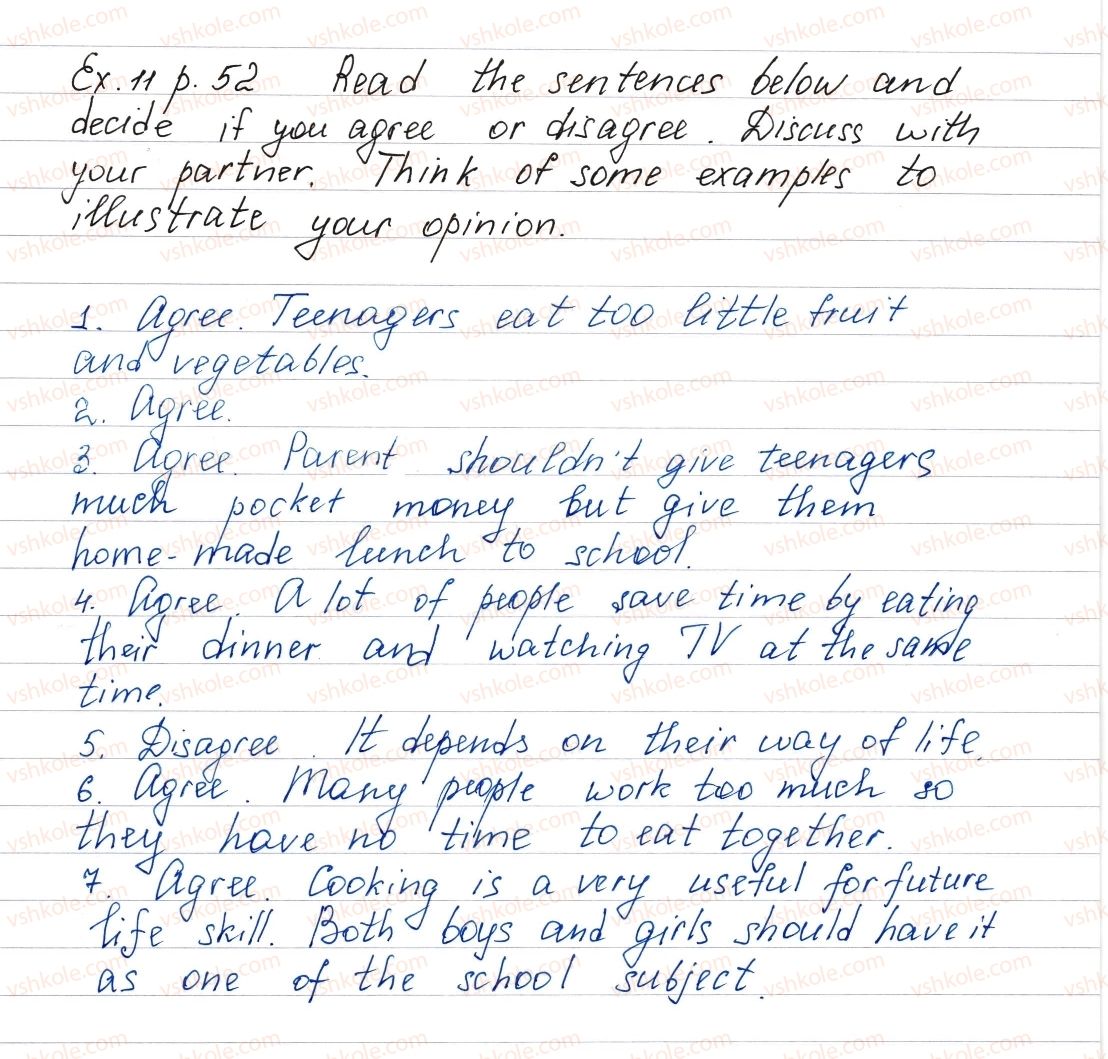 Ex. 11 p. 52 Read the sentences below and
decide if you agree or disagree. Discuss with
your partner. Think of some examples to
illustrate your opinion.
1. Agree. Teenagers eat too little fruit
and vegetables.
2. Agree.
3. Agree. Parent shouldn't give teenagers
much pocket money but give them
home-made lunch to school.
4. Agree. A lot of people save time by eating
their dinner and watching TV at the same
time.
5. Disagree. It depends on their way of life.
6. Agree. Many people work too much so
they have no time to eat together.
7. Agree. Cooking is a very useful for future
life skill. Both boys and girls should have it
as one of the school subject.
vshkole.com